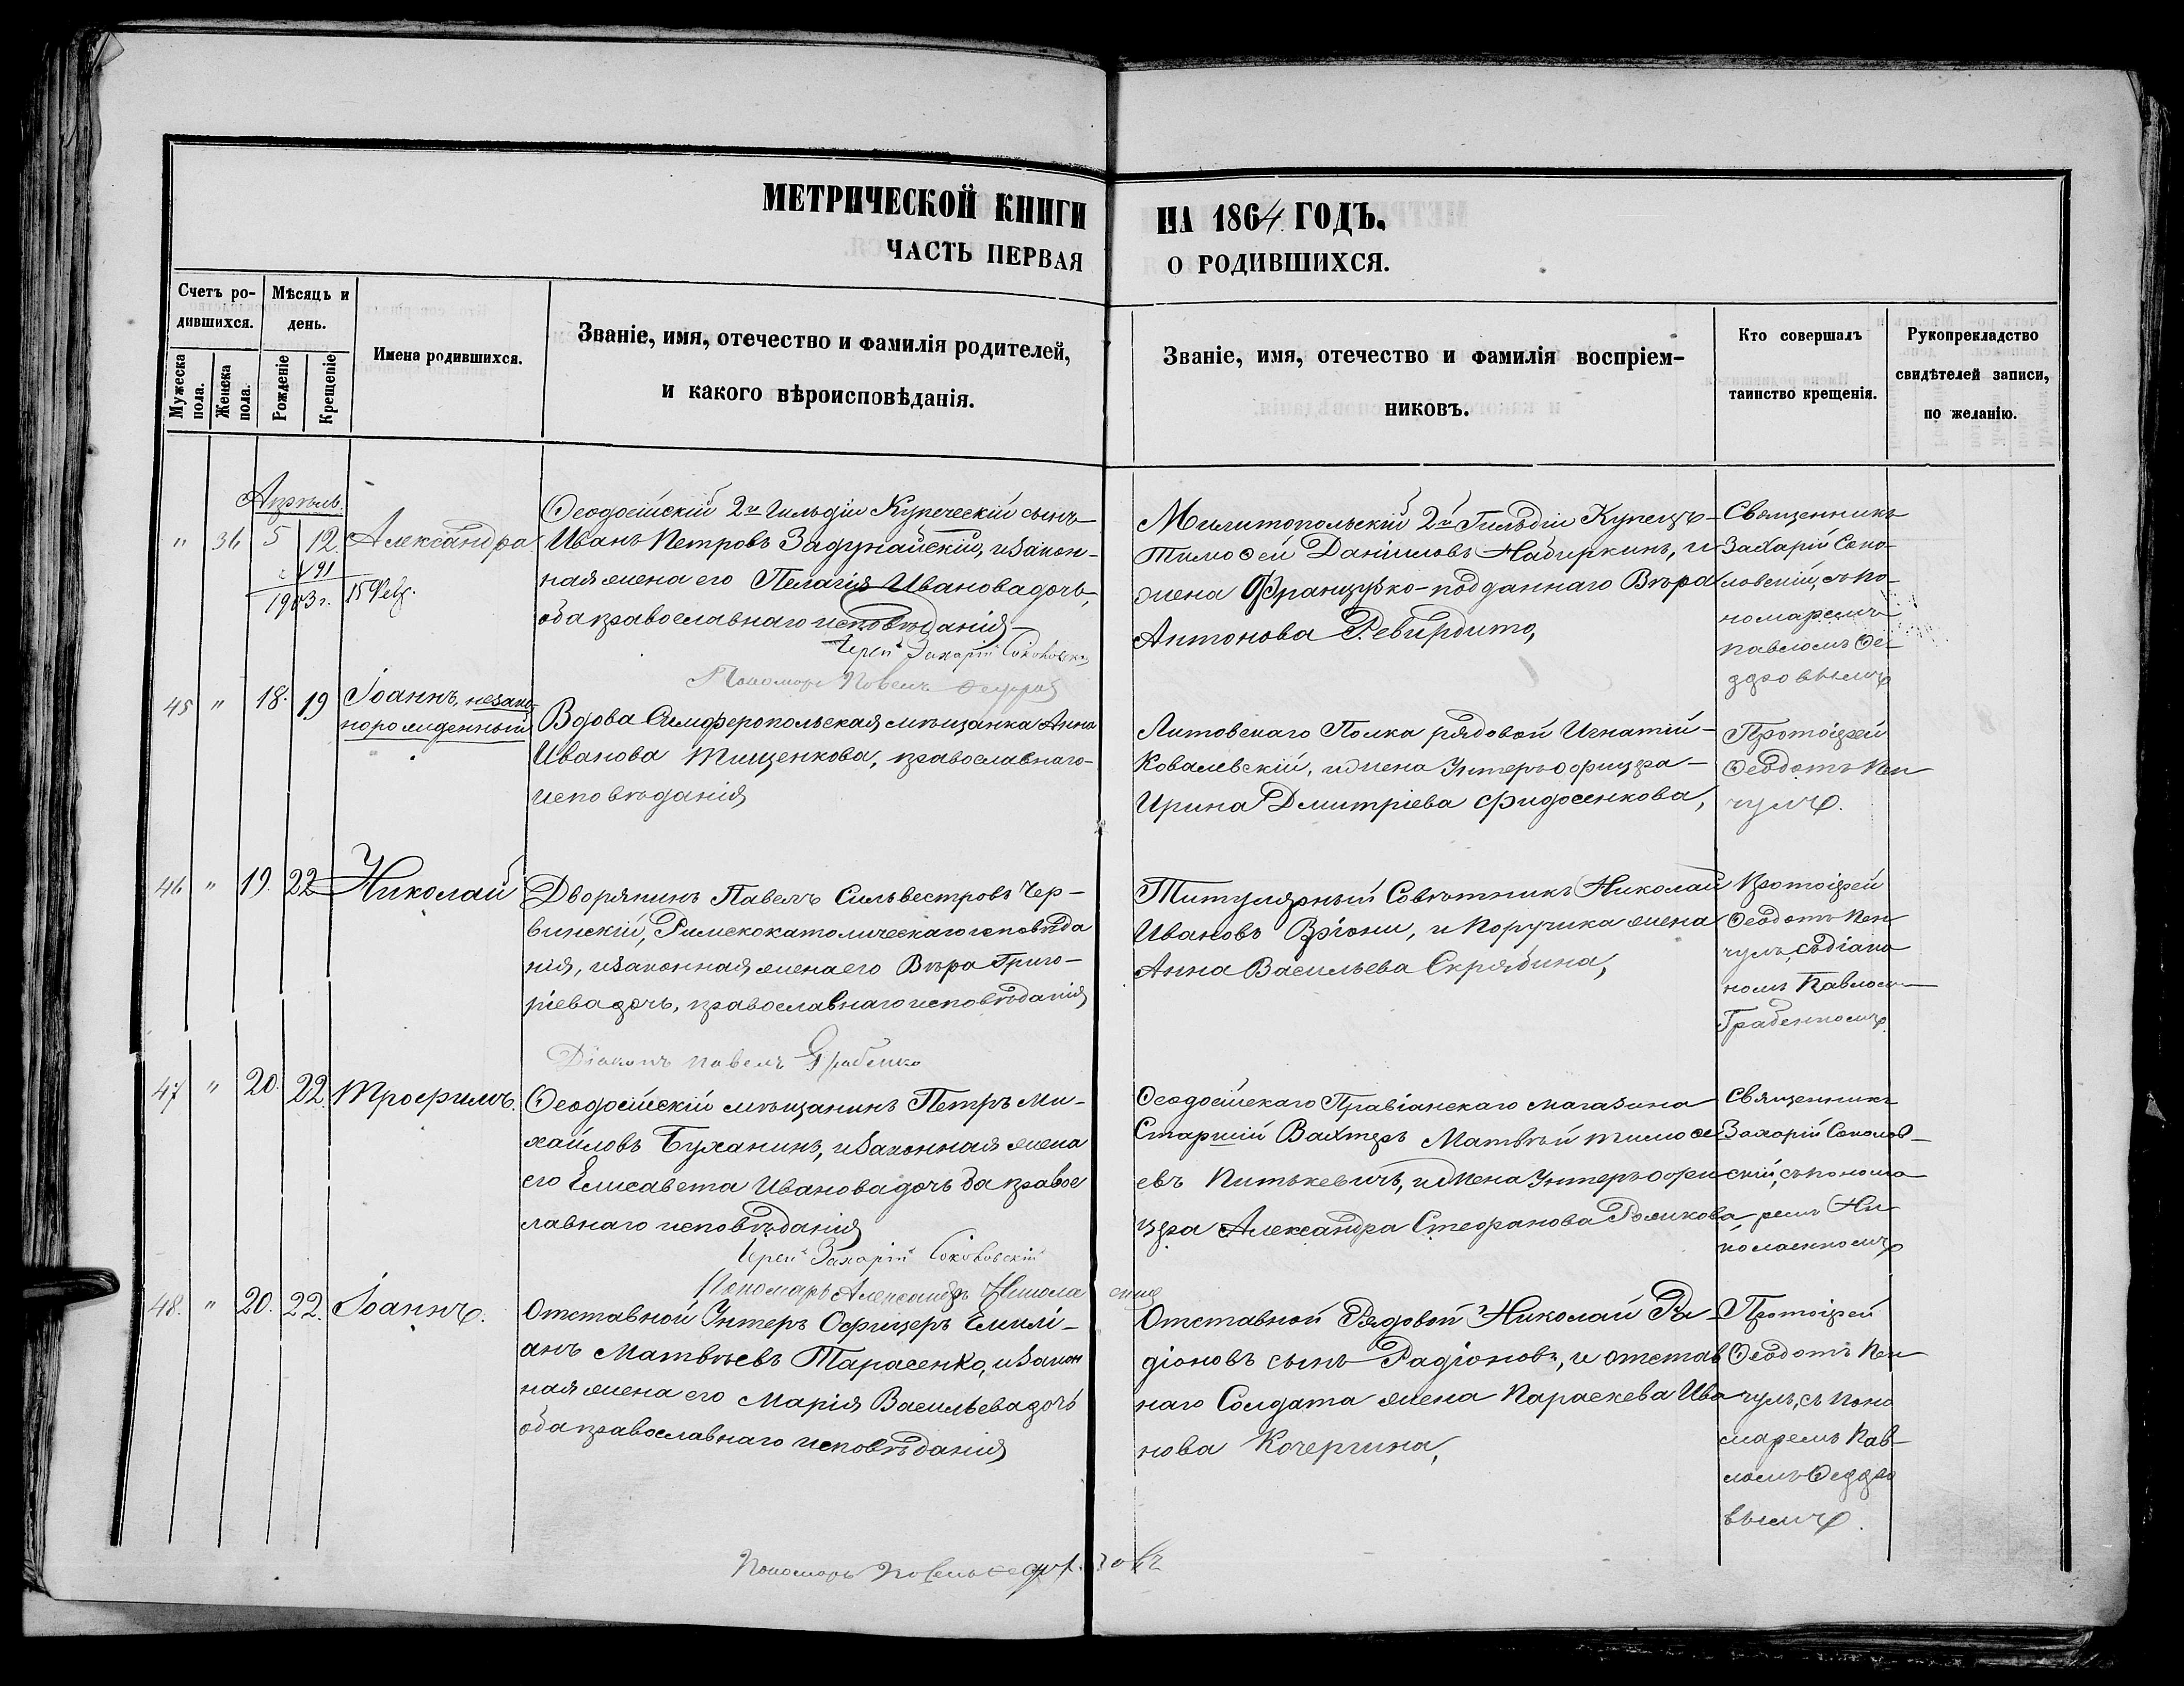 МЕТРИЧЕСКОЙ КНИГИ НА 1864 ГОДЪ.
ЧАСТЬ ПЕРВАЯ О РОДИВШИХСЯ.
Счетъ ро-
дившихся.
Мужеска пола.
Женска пола.
Мѣсяць и
день.
Рожденіе
Крещеніе
Имена родившихся.
Званіе, имя, отечество и фамилія родителей,
и какого вѣроисповѣданія.
Званіе, имя, отечество и фамилія воспріем-
никовъ.
Кто совершалъ
таинство крещенія.
Рукопрекладство
свидѣтелей записи,
по желанію.
Апрѣль.
" 36 5 12. Александра
1903 г. 15 Февр.
Ѳеодосійскій 2й Гильдіи Купеческій сынъ
Иванъ Петровъ Задунайскій, и закон-
ная жена его Пелагія Иванова дочь,
оба православнаго исповѣданія
Іерей Захарій Соколовскій
Пономарь Павелъ
Мелитопольскій 2й Гильдіи Купецъ
Тимоѳей Даніиловъ Набиркинъ, и
жена Французко-подданнаго Вѣра
Антонова Ревирдито,
Священникъ
Захарій Соко-
ловскій, съ по-
номаремъ
Павломъ Ѳе-
доровымъ
45 " 18. 19 Іоаннъ, незако-
норожденный
Вдова Симферопольская мѣщанка Анна
Иванова Тищенкова, православнаго
исповѣданія
Литовскаго Полка рядовой Игнатій
Ковалевскій, и жена Унтеръ офицера
Ирина Дмитріева Фидосенкова,
Протоіерей
Ѳеодотъ Кен-
чулъ.
46 " 19. 22 Николай
Дворянинъ Павелъ Сильвестровъ Чер-
винскій, Римскокатолическаго исповѣда
нія, и законная жена его Вѣра Григо-
ріева дочь, православнаго исповѣданія
Діаконъ Павелъ Грабенко
Титулярный Совѣтникъ Николай
Ивановъ Вріони, и Поручика жена
Анна Васильева Скрябина,
Протоіерей
Ѳеодотъ Кен
чулъ, съ діако
номъ Павлом
Грабенкомъ
47 " 20. 22. Трофимъ.
Ѳеодосійскій мѣщанинъ Петръ Ми-
хайловъ Буханинъ, и законная жена
его Елисавета Иванова дочь ба правос
лавнаго исповѣданія
Іерей Захарій Соколовскій
Пономарь Александръ Никола енко
Ѳеодосійскаго Правіанскаго магазина
Старшій Вахтеръ Матвѣй Тимоѳе
евъ Питькевичъ, и жена Унтеръ офи
цера Александра Стефанова Роликова
Священникъ
Захарій Соколов-
скій, съ понома
ремъ Ни
колаенкомъ
48. " 20. 22. Іоаннъ.
Отставной Унтеръ Офицеръ Емилі-
анъ Матвѣевъ Тарасенко, и закон
ная жена его Марія Васильева дочь
оба православнаго исповѣданія
Отставной Рядовой Николай Ра-
діоновъ сынъ Радіоновъ, и отстав
наго Солдата жена Параскева Ива
нова Кочергина,
Протоіерей
Ѳеодотъ Кен
чулъ, съ поно
маремъ Пав-
ломъ Ѳедоро
вымъ.
Пономарь Павелъ